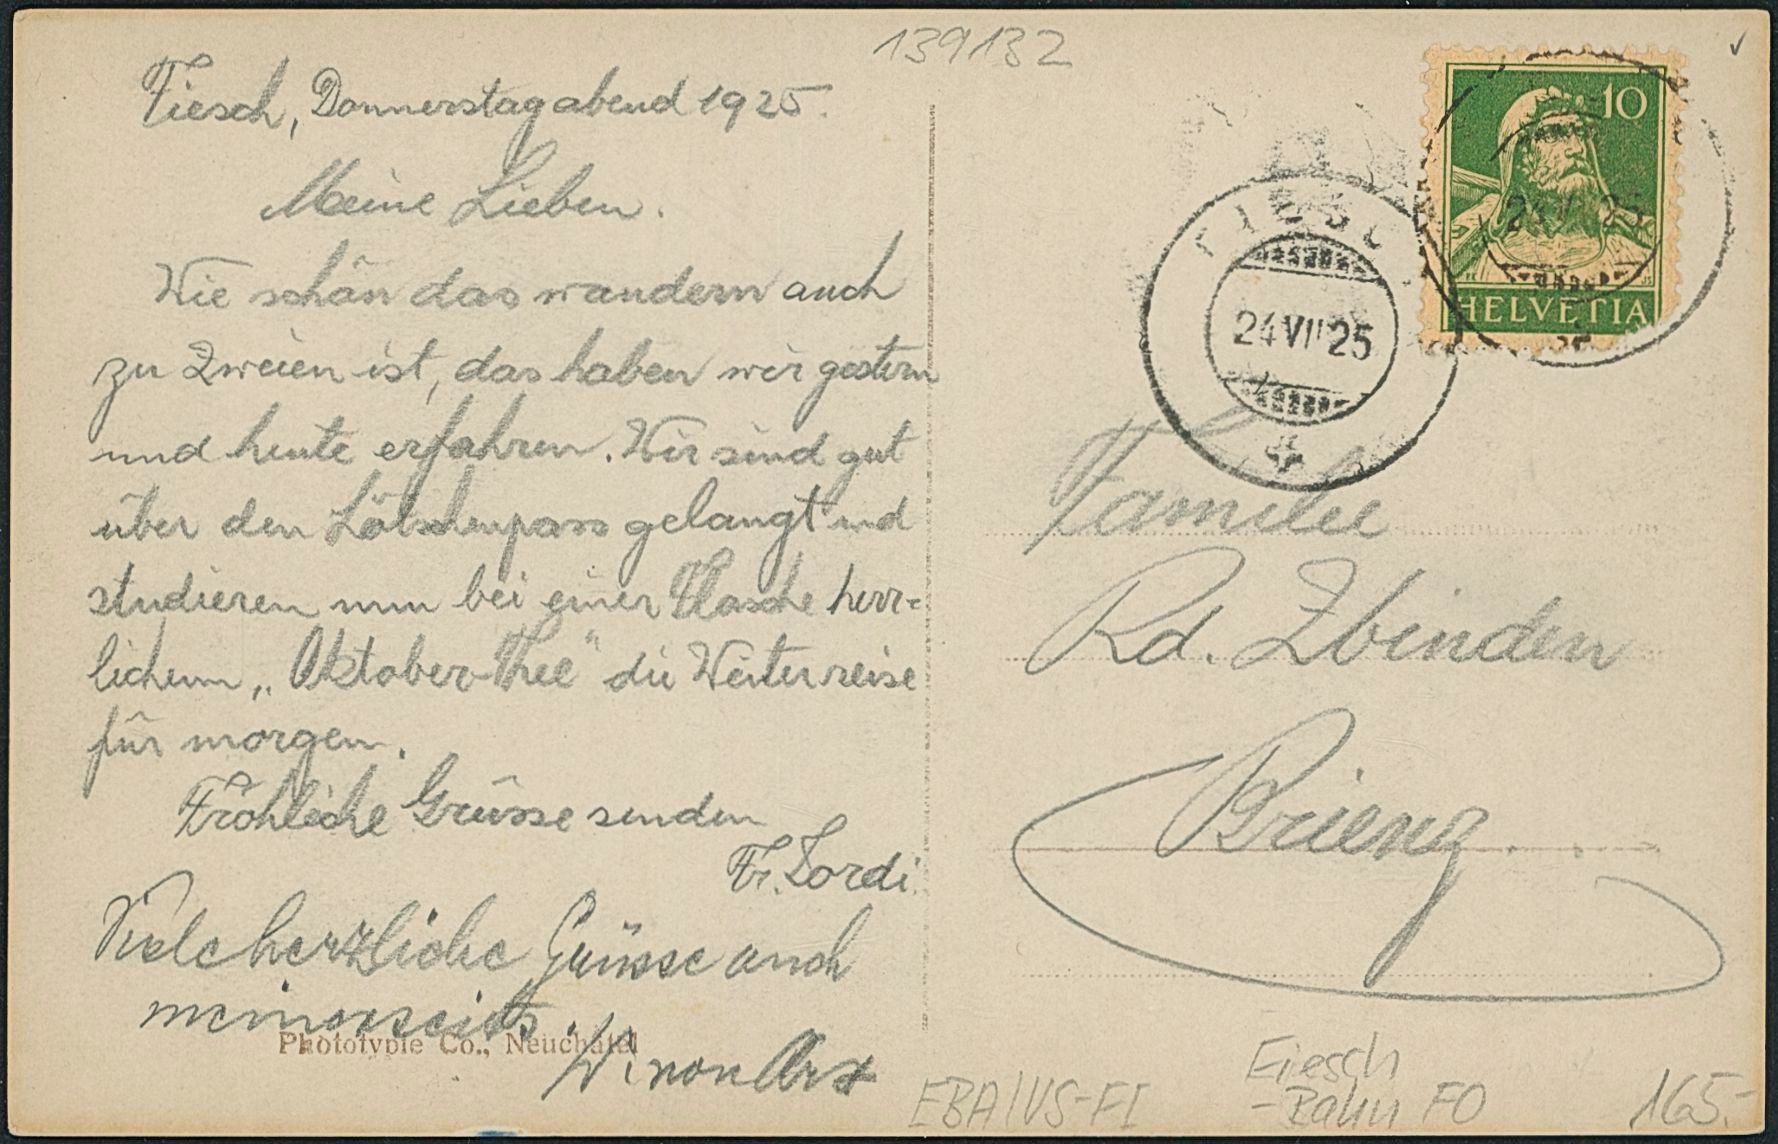 139132
Fiesch, Donnerstag abend 1925.
Meine Lieben.
Wie schön das wandern auch
zu Zweien ist, das haben wir gestern
und heute erfahren. Wir sind gut
über den Lötschenpass gelangt und
studieren nun bei einer Flasche herr=
lichem „Oktober-Thee" die Weiterreise
für morgen.
Fröhliche Grüsse senden
Fr. Dordi
Viele herzliche Grüsse auch
meinerseits.
W. von Arx
Phototypie Co., Neuchâtel
10
HELVETIA
FIESCH
24 VII 25
Familie
Rd. Zbinden
Brienz
EBA/VS-FI
Fiesch
-Bahn FO
165.-